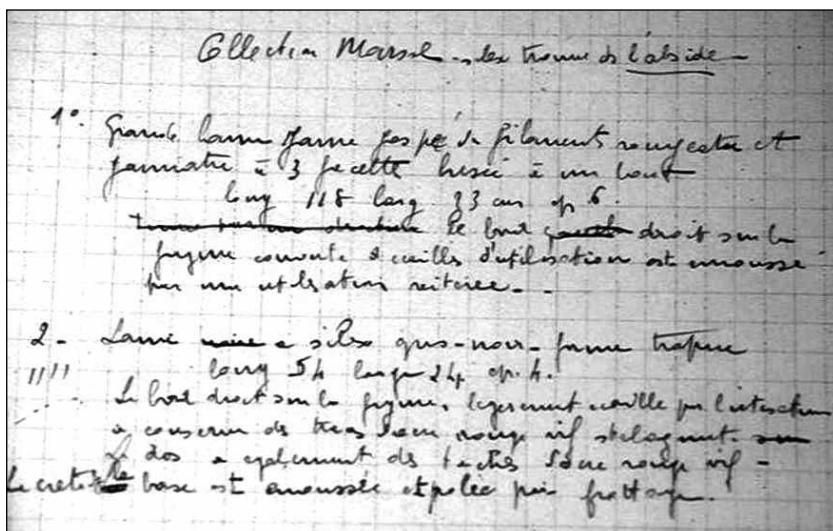 Collection Marsol - les trouvé ds l'abside -
1°. Grande lame jaune jaspé de filaments rougeatre et
jaunatre à 3 facette brisée à un bout
long 118 larg 33 ep 6.
le bord droit sur la
figure couverte d'ecailles d'utilisation est emoussé
par une utilsation réiterée - -
2 - Lame silex gris-noir - forme trapue
long 54 large 24 ep. 4.
Le bord droit sur la figure, legerement ecaillé par l'utilisation
a conservé des traces d'ocre rouge vif
Le dos a egalement des taches d'ocre rouge vif -
La crete base est emoussée et polie par frottage.